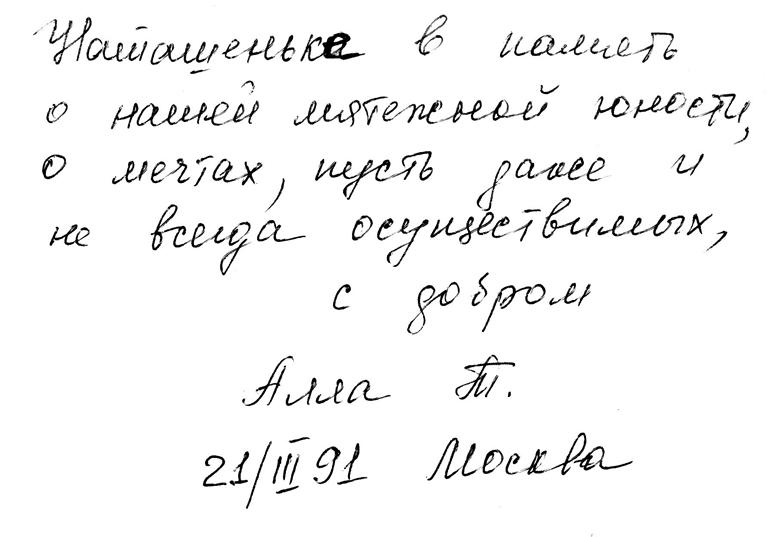 Наташеньке в память
о нашей мятежной юности,
о мечтах, пусть даже и
не всегда осуществимых,
с добром
Алла Т.
21/III 91 Москва